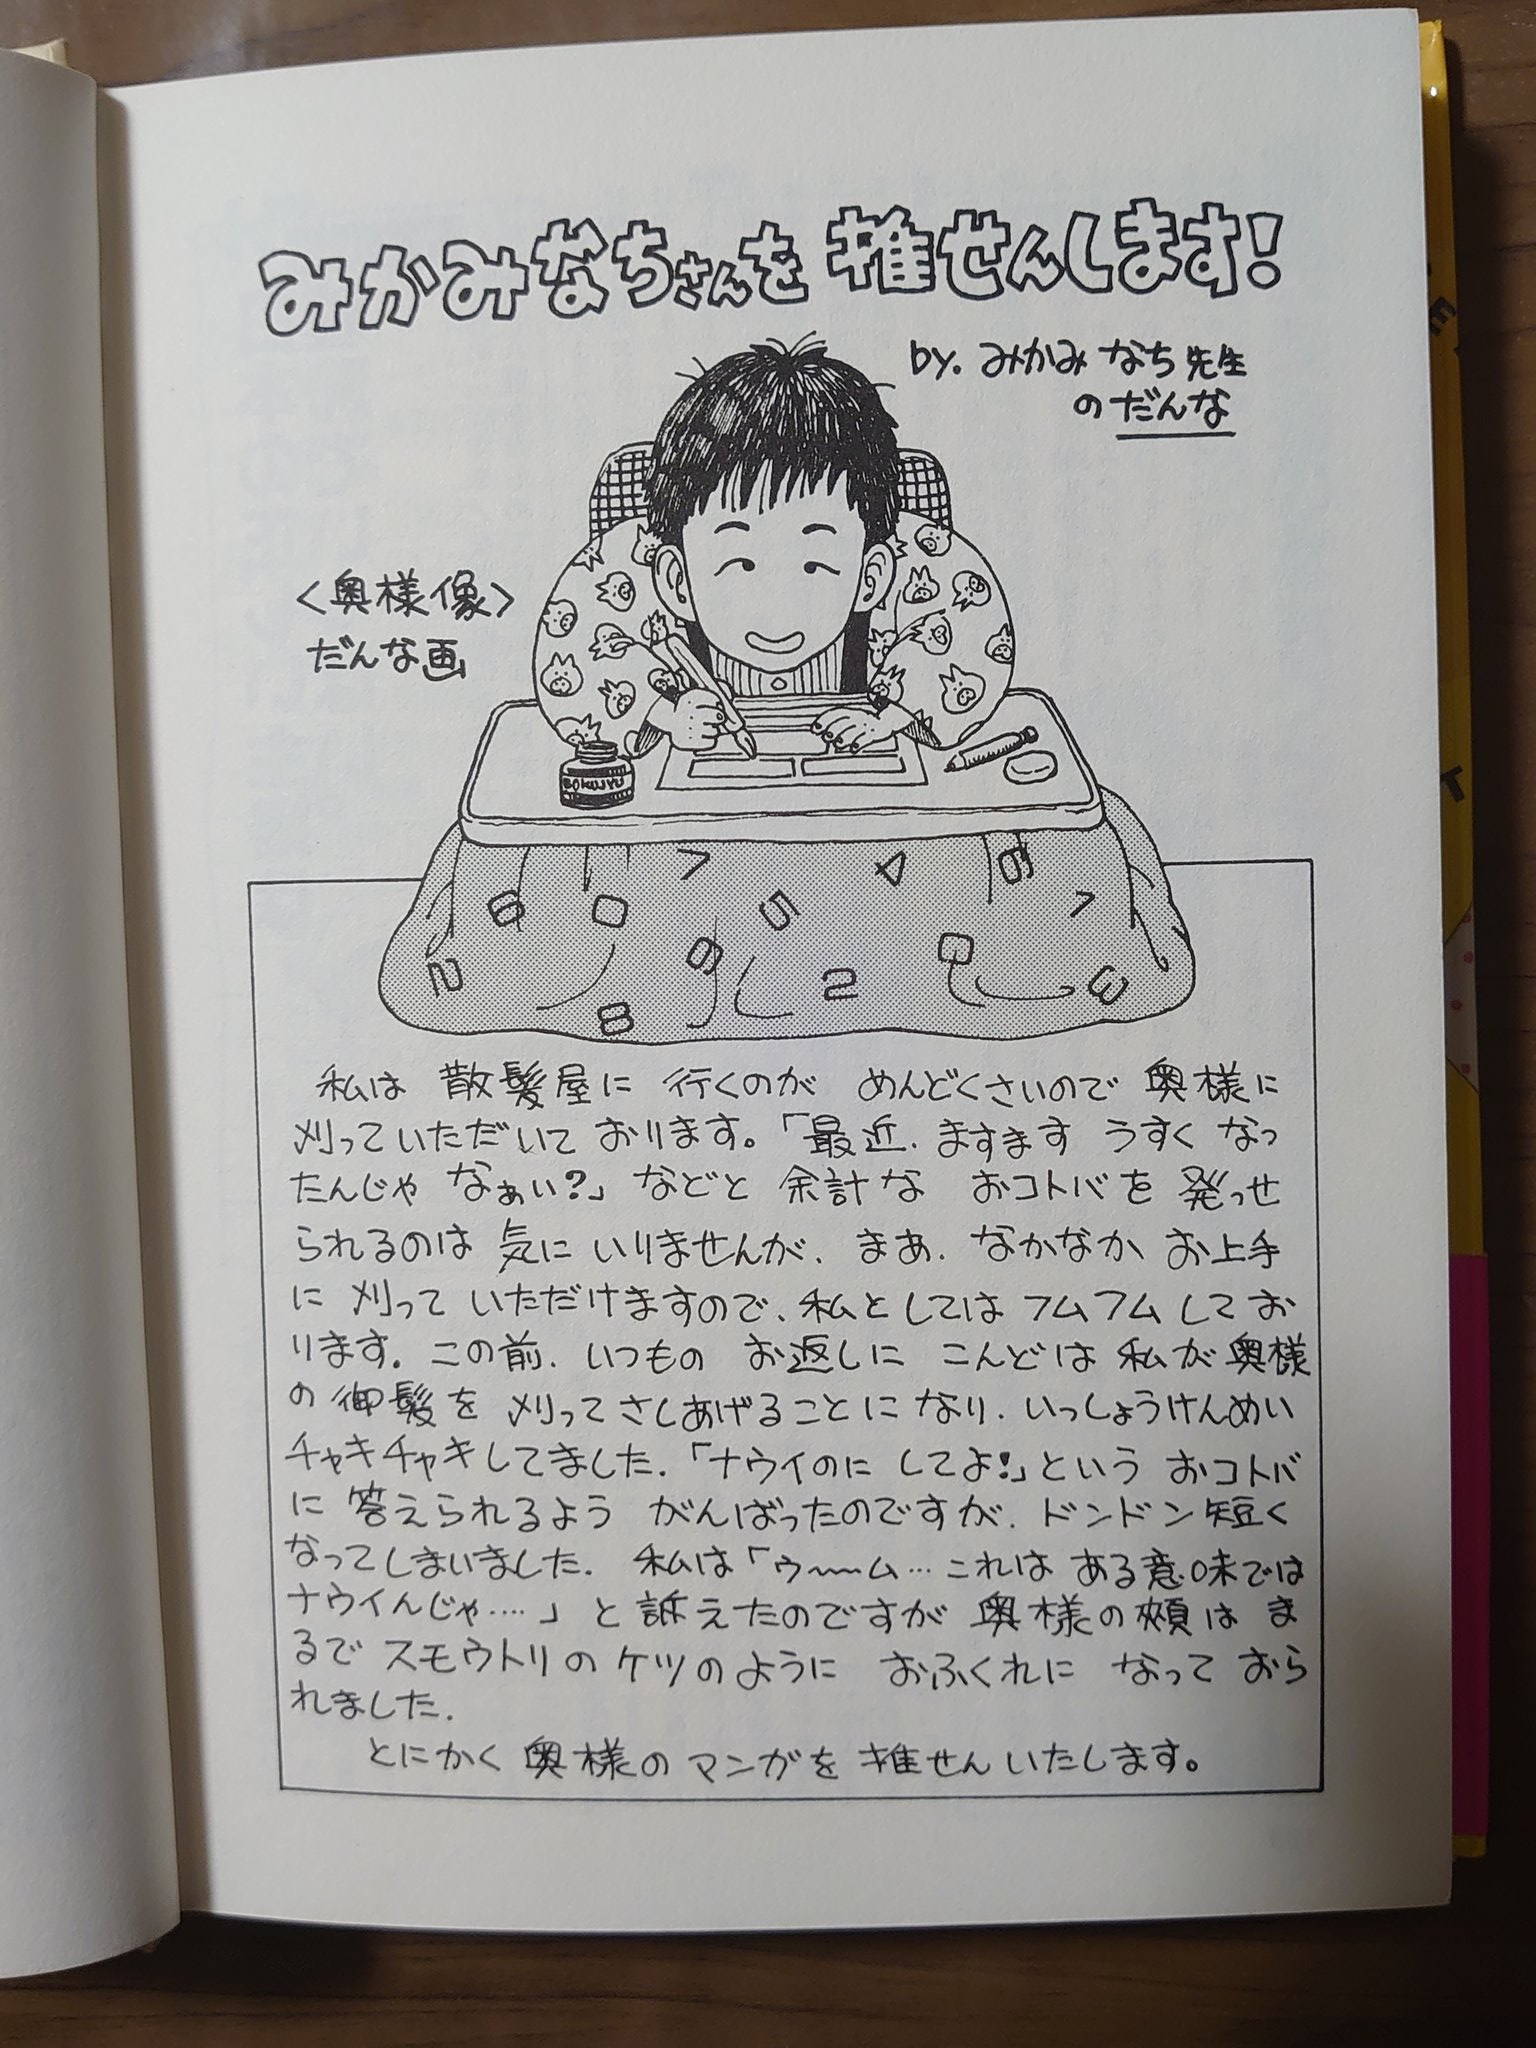 みかみなちさんを推せんします!
by. みかみなち先生
のだんな
<奥様像>
だんな画
BOKUJYU
7 4 6 7
6 0 5
2 9 2 0 3
8
私は 散髪屋に 行くのが めんどくさいので 奥様に
刈っていただいて おります。「最近、ますます うすく なっ
たんじゃ なぁい?」などと 余計な おコトバを 発っせ
られるのは 気に いりませんが、まあ、なかなか お上手
に 刈って いただけますので、私としては フムフム してお
ります。この前、いつもの お返しに こんどは 私が奥様
の 御髪を 刈ってさしあげることに なり、いっしょうけんめい
チャキチャキしてました。「ナウイのに してよ!」という おコトバ
に 答えられるよう がんばったのですが、ドンドン短く
なってしまいました。私は「ゥ〜〜ム…これは ある意味では
ナウイんじゃ‥‥」と訴えたのですが 奥様の頬は ま
るで スモウトリの ケツのように おふくれに なって おら
れました。
とにかく 奥様の マンガを 推せん いたします。